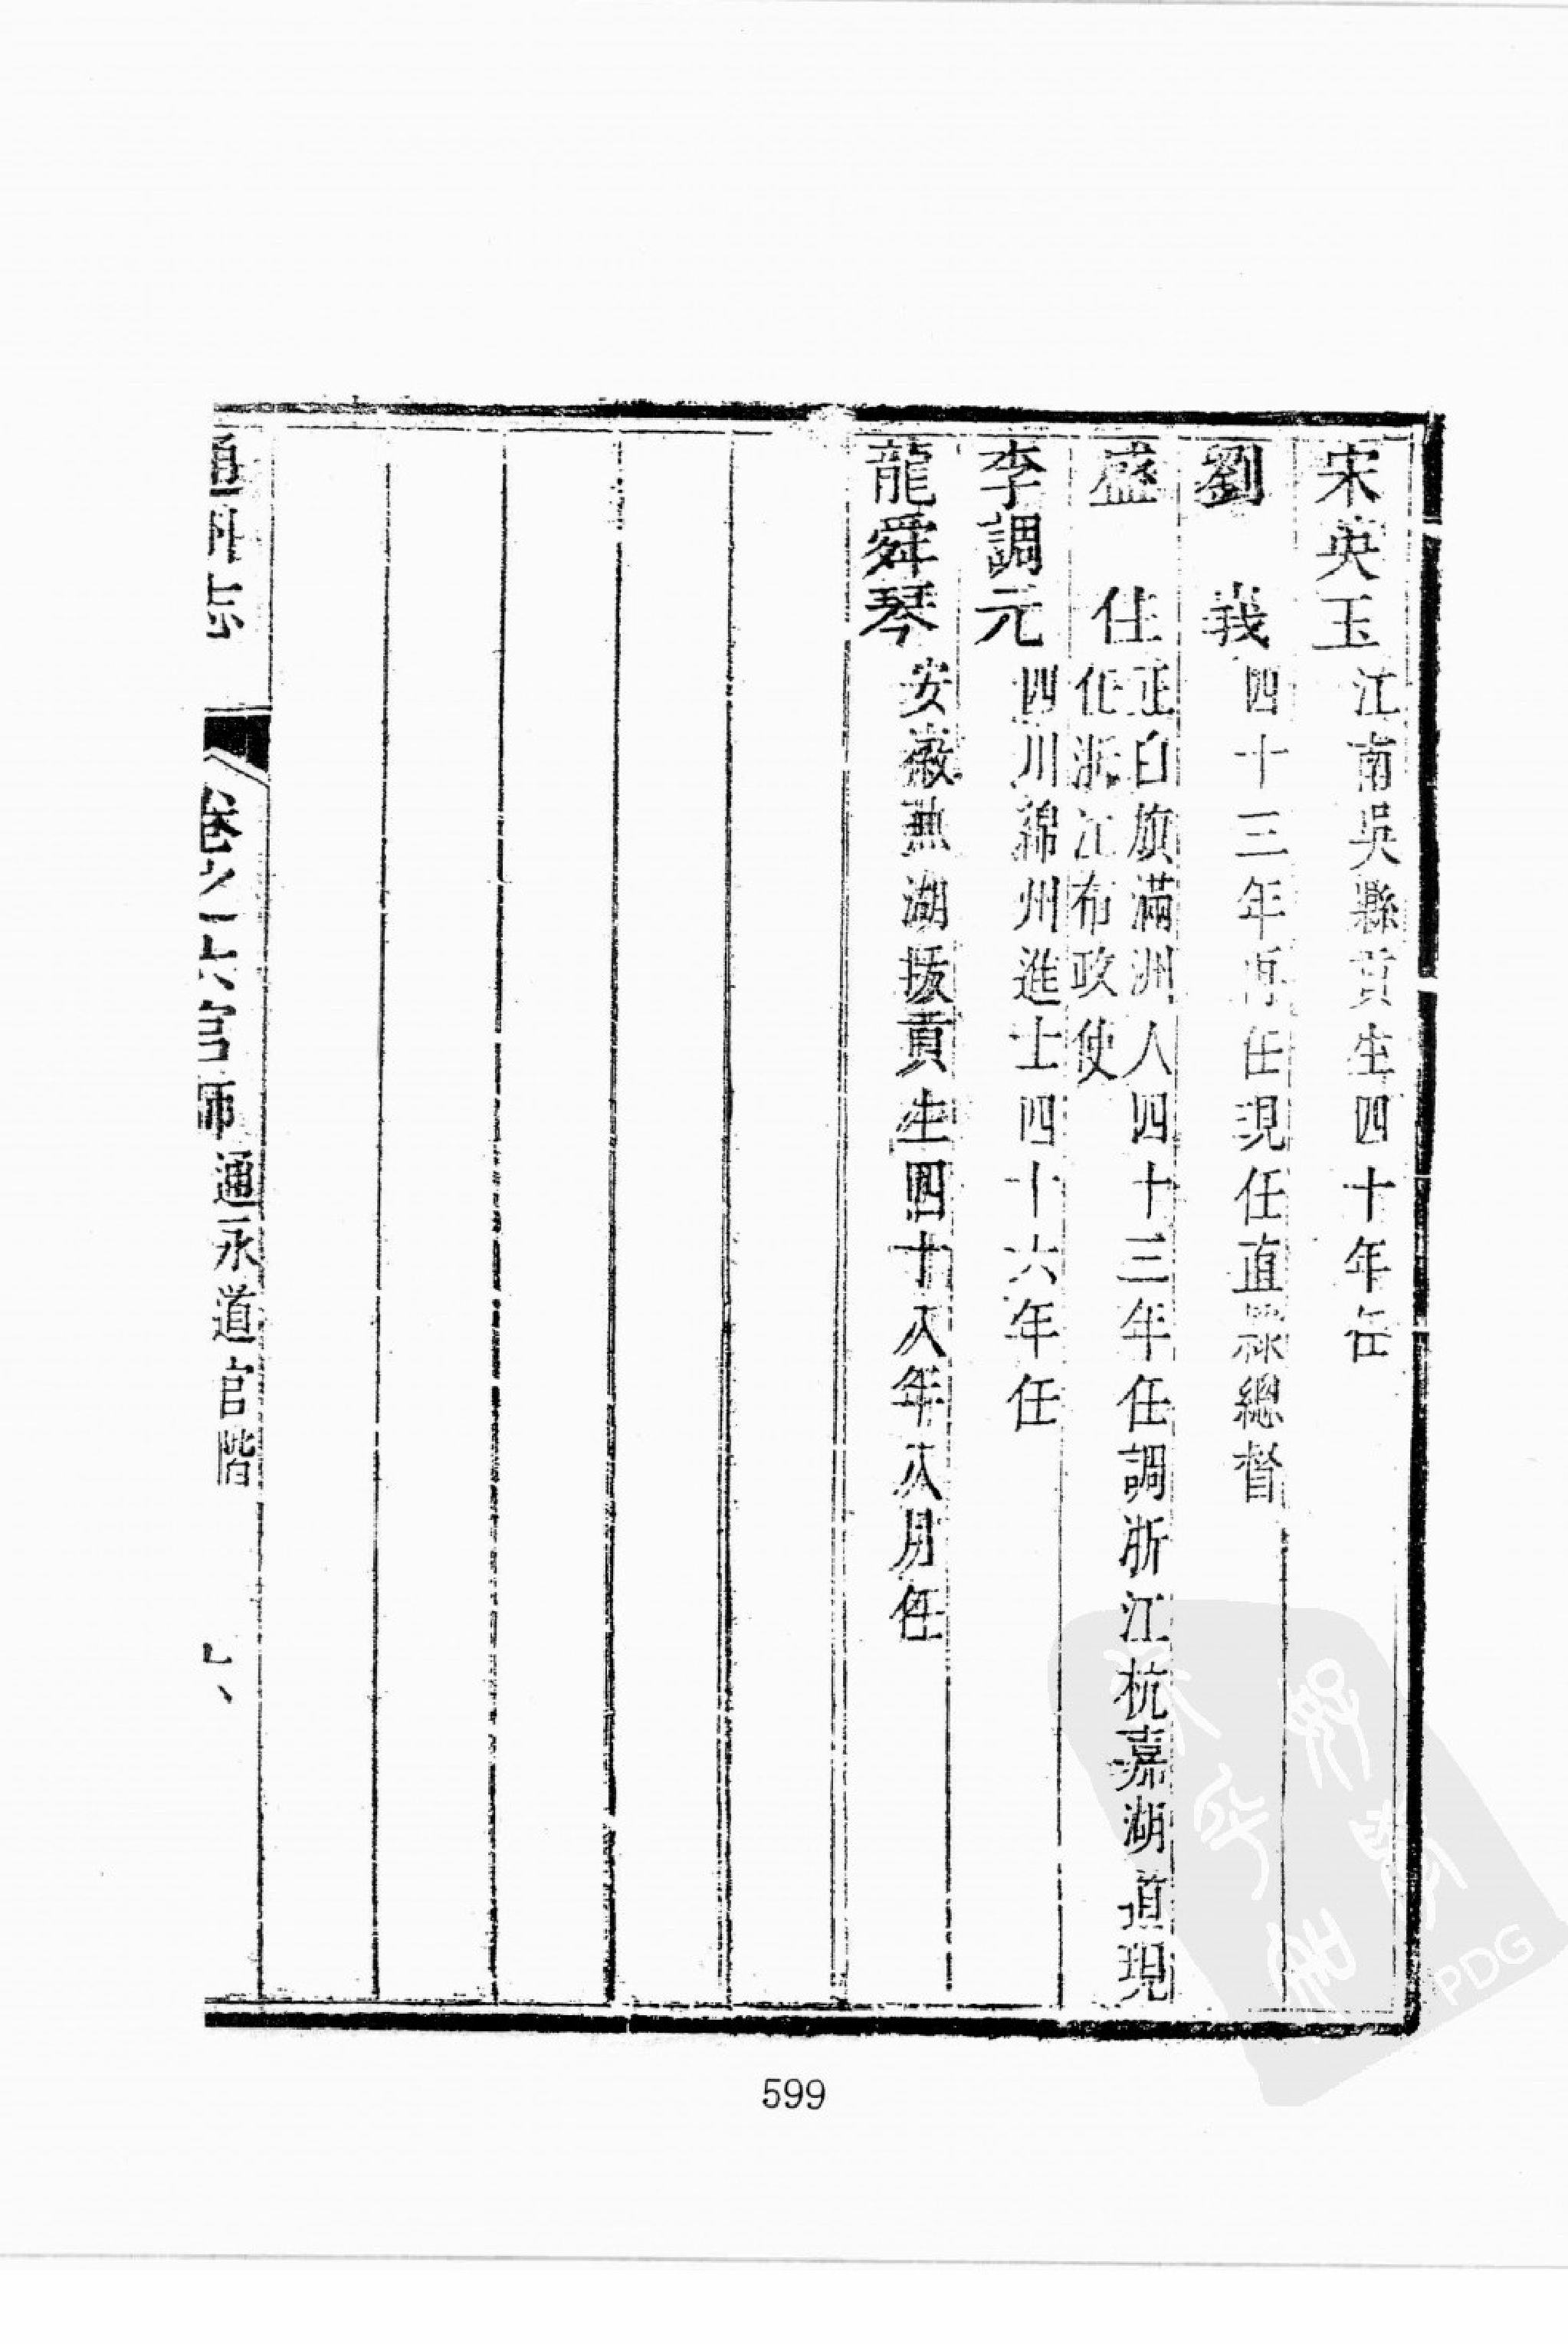 宋英玉江南吳縣貢生四十年任
劉 峩四十三年再任現任直隸總督
盛 住正白旗滿洲人四十三年任調浙江杭嘉湖道現
任浙江布政使
李調元四川綿州進士四十六年任
龍舜琴安徽蕪湖拔貢生四十八年八月任
通州志 卷之六官師通永道官階
599
PDG